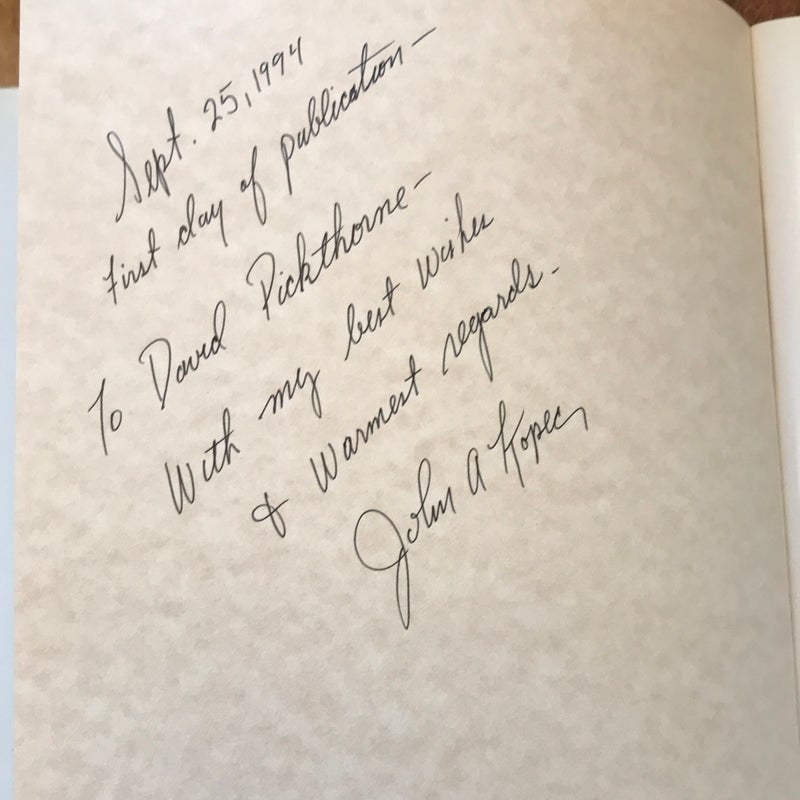 Sept. 25, 1994
First day of publication—
To David Pickthorne—
With my best wishes
& Warmest regards.
John A Kopec